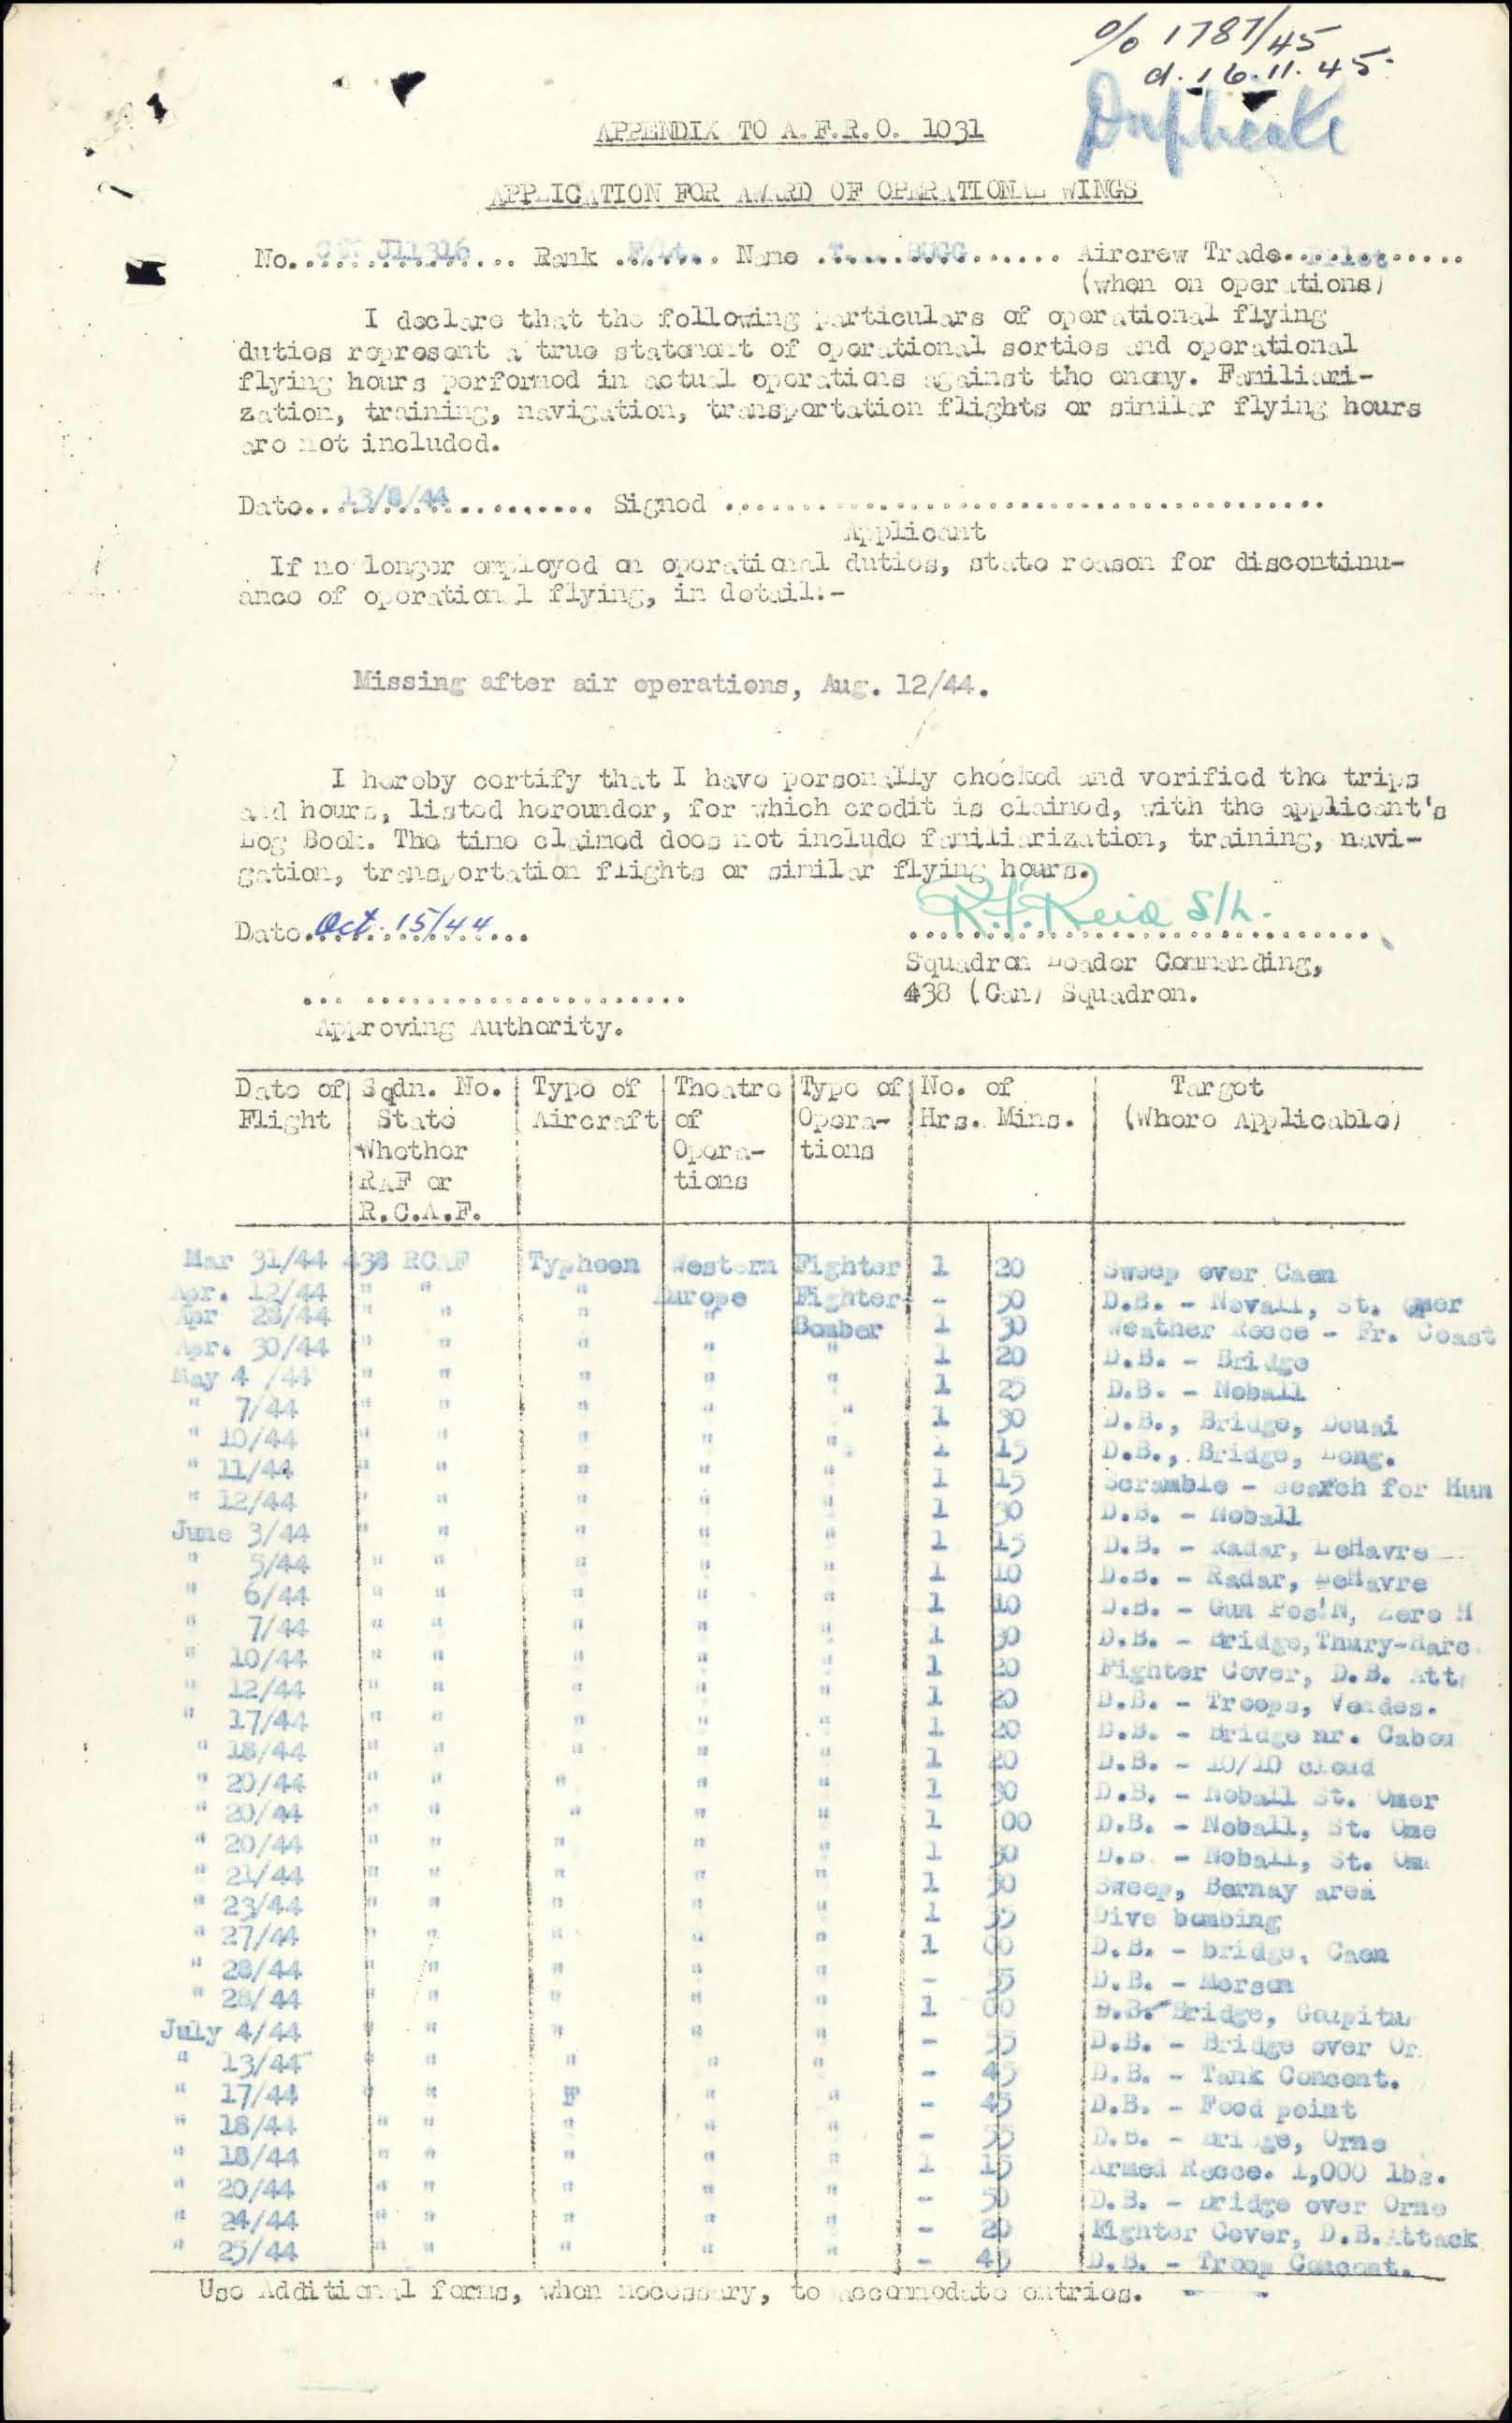 % 1787/45
d. 16.11.45.
Duplicate
APPENDIX TO A.F.R.O. 1031
APPLICATION FOR AWARD OF OPERATIONAL WINGS
No. CAN J11316 Rank F/Lt. Name BUGG Aircrew Trade Pilot
(when on operations)
I declare that the following particulars of operational flying
duties represent a true statement of operational sorties and operational
flying hours performed in actual operations against the enemy. Familiari-
zation, training, navigation, transportation flights or similar flying hours
are not included.
Date 13/8/44 Signed
Applicant
If no longer employed on operational duties, state reason for discontinu-
ance of operational flying, in detail:-
Missing after air operations, Aug. 12/44.
I hereby certify that I have personally checked and verified the trips
and hours, listed hereunder, for which credit is claimed, with the applicant's
Log Book. The time claimed does not include familiarization, training, navi-
gation, transportation flights or similar flying hours.
Date Oct. 15/44 R.F. Reid S/L.
Squadron Leader Commanding,
438 (Can) Squadron.
Approving Authority.
Date of Sqdn. No. Type of Theatre Type of No. of Target
Flight State Aircraft of Opera- Hrs. Mins. (Where Applicable)
Whether Opera- tions
RAF or tions
R.C.A.F.
Mar 31/44 438 RCAF Typhoon Western Fighter 1 20 Sweep over Caen
Apr. 12/44 " " " Europe Fighter- - 50 D.B. - Novall, St. Omer
Apr 28/44 " " " " Bomber 1 30 Weather Recce - Fr. Coast
Apr. 30/44 " " " " " 1 20 D.B. - Bridge
May 4 /44 " " " " " 1 25 D.B. - Noball
" 7/44 " " " " " 1 30 D.B., Bridge, Douai
" 10/44 " " " " " 1 15 D.B., Bridge, Long.
" 11/44 " " " " " 1 15 Scramble - search for Hun
" 12/44 " " " " " 1 30 D.B. - Noball
June 3/44 " " " " " 1 15 D.B. - Radar, LeHavre
" 5/44 " " " " " 1 10 D.B. - Radar, LeHavre
" 6/44 " " " " " 1 10 D.B. - Gun Pos'N, Zero H
" 7/44 " " " " " 1 30 D.B. - Bridge, Thury-Harc
" 10/44 " " " " " 1 20 Fighter Cover, D.B. Att
" 12/44 " " " " " 1 20 D.B. - Troops, Vendes.
" 17/44 " " " " " 1 20 D.B. - Bridge nr. Cabou
" 18/44 " " " " " 1 20 D.B. - 10/10 cloud
" 20/44 " " " " " 1 30 D.B. - Noball St. Omer
" 20/44 " " " " " 1 00 D.B. - Noball, St. Ome
" 20/44 " " " " " 1 30 D.B. - Noball, St. Om
" 21/44 " " " " " 1 30 Sweep, Bernay area
" 23/44 " " " " " 1 35 Dive bombing
" 27/44 " " " " " 1 00 D.B. - bridge, Caen
" 28/44 " " " " " - 55 D.B. - Norson
" 28/44 " " " " " 1 00 D.B. Bridge, Goupitu
July 4/44 " " " " " - 55 D.B. - Bridge over Or
" 13/44 " " " " " - 45 D.B. - Tank Concent.
" 17/44 " " " " " - 45 D.B. - Food point
" 18/44 " " " " " - 55 D.B. - Bridge, Orne
" 18/44 " " " " " 1 15 Armed Recce. 1,000 lbs.
" 20/44 " " " " " - 50 D.B. - Bridge over Orne
" 24/44 " " " " " - 20 Fighter Cover, D.B. Attack
" 25/44 " " " " " - 45 D.B. - Troop Concent.
Use Additional forms, when necessary, to accomodate entries.